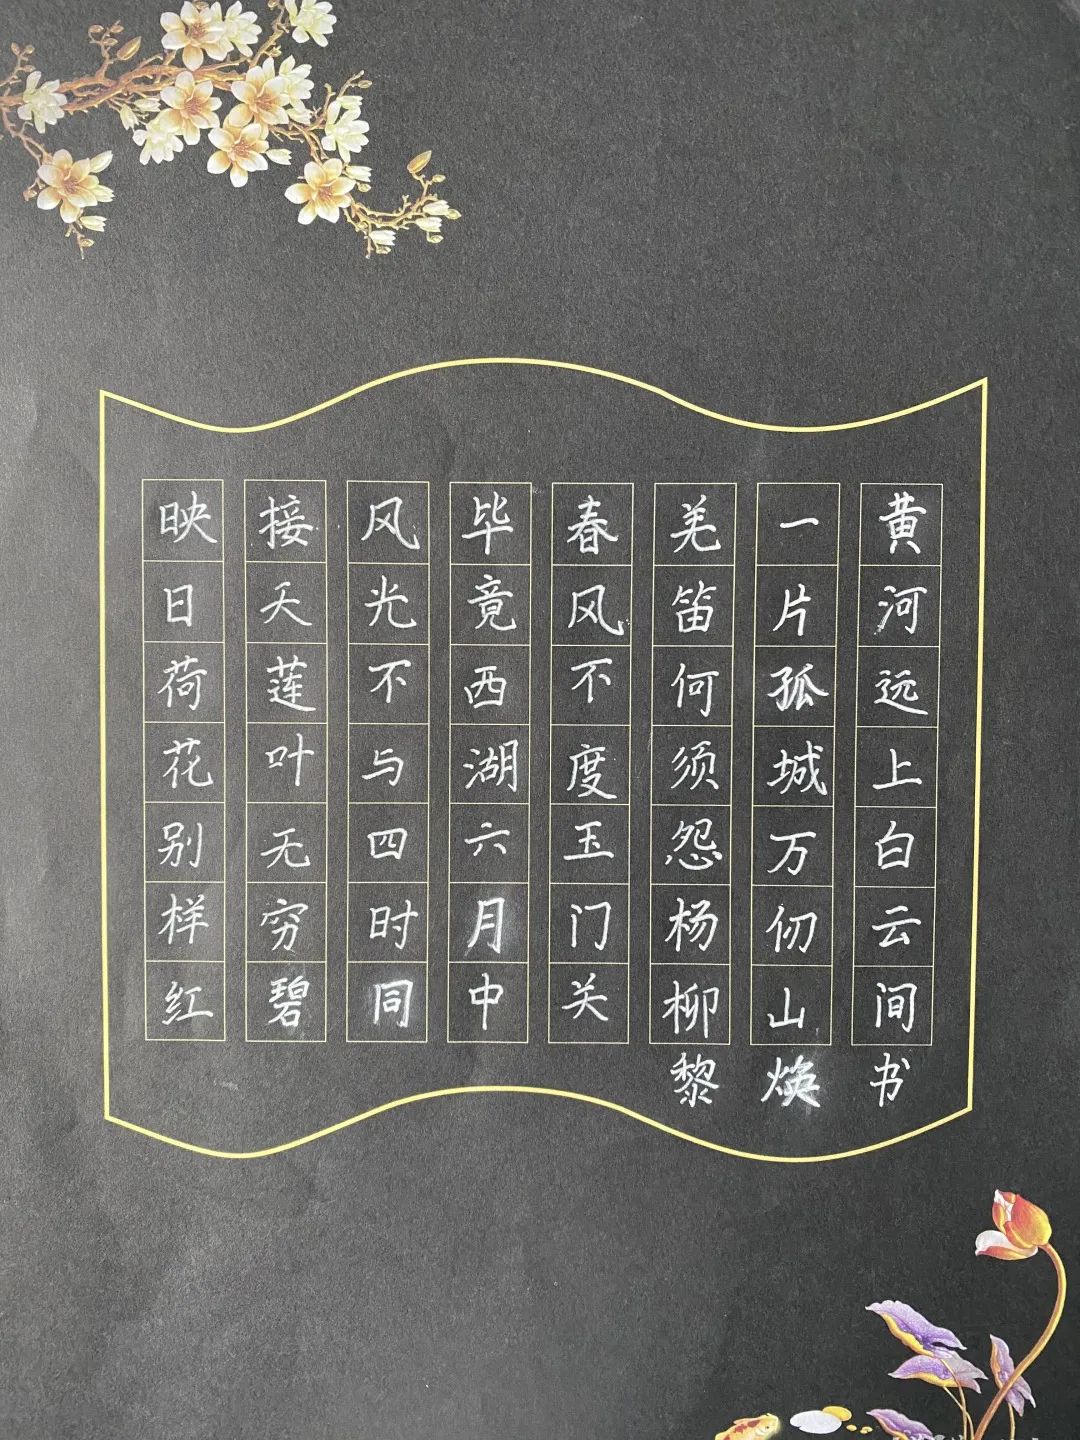 黄河远上白云间
一片孤城万仞山
羌笛何须怨杨柳
春风不度玉门关
毕竟西湖六月中
风光不与四时同
接天莲叶无穷碧
映日荷花别样红
黎焕书